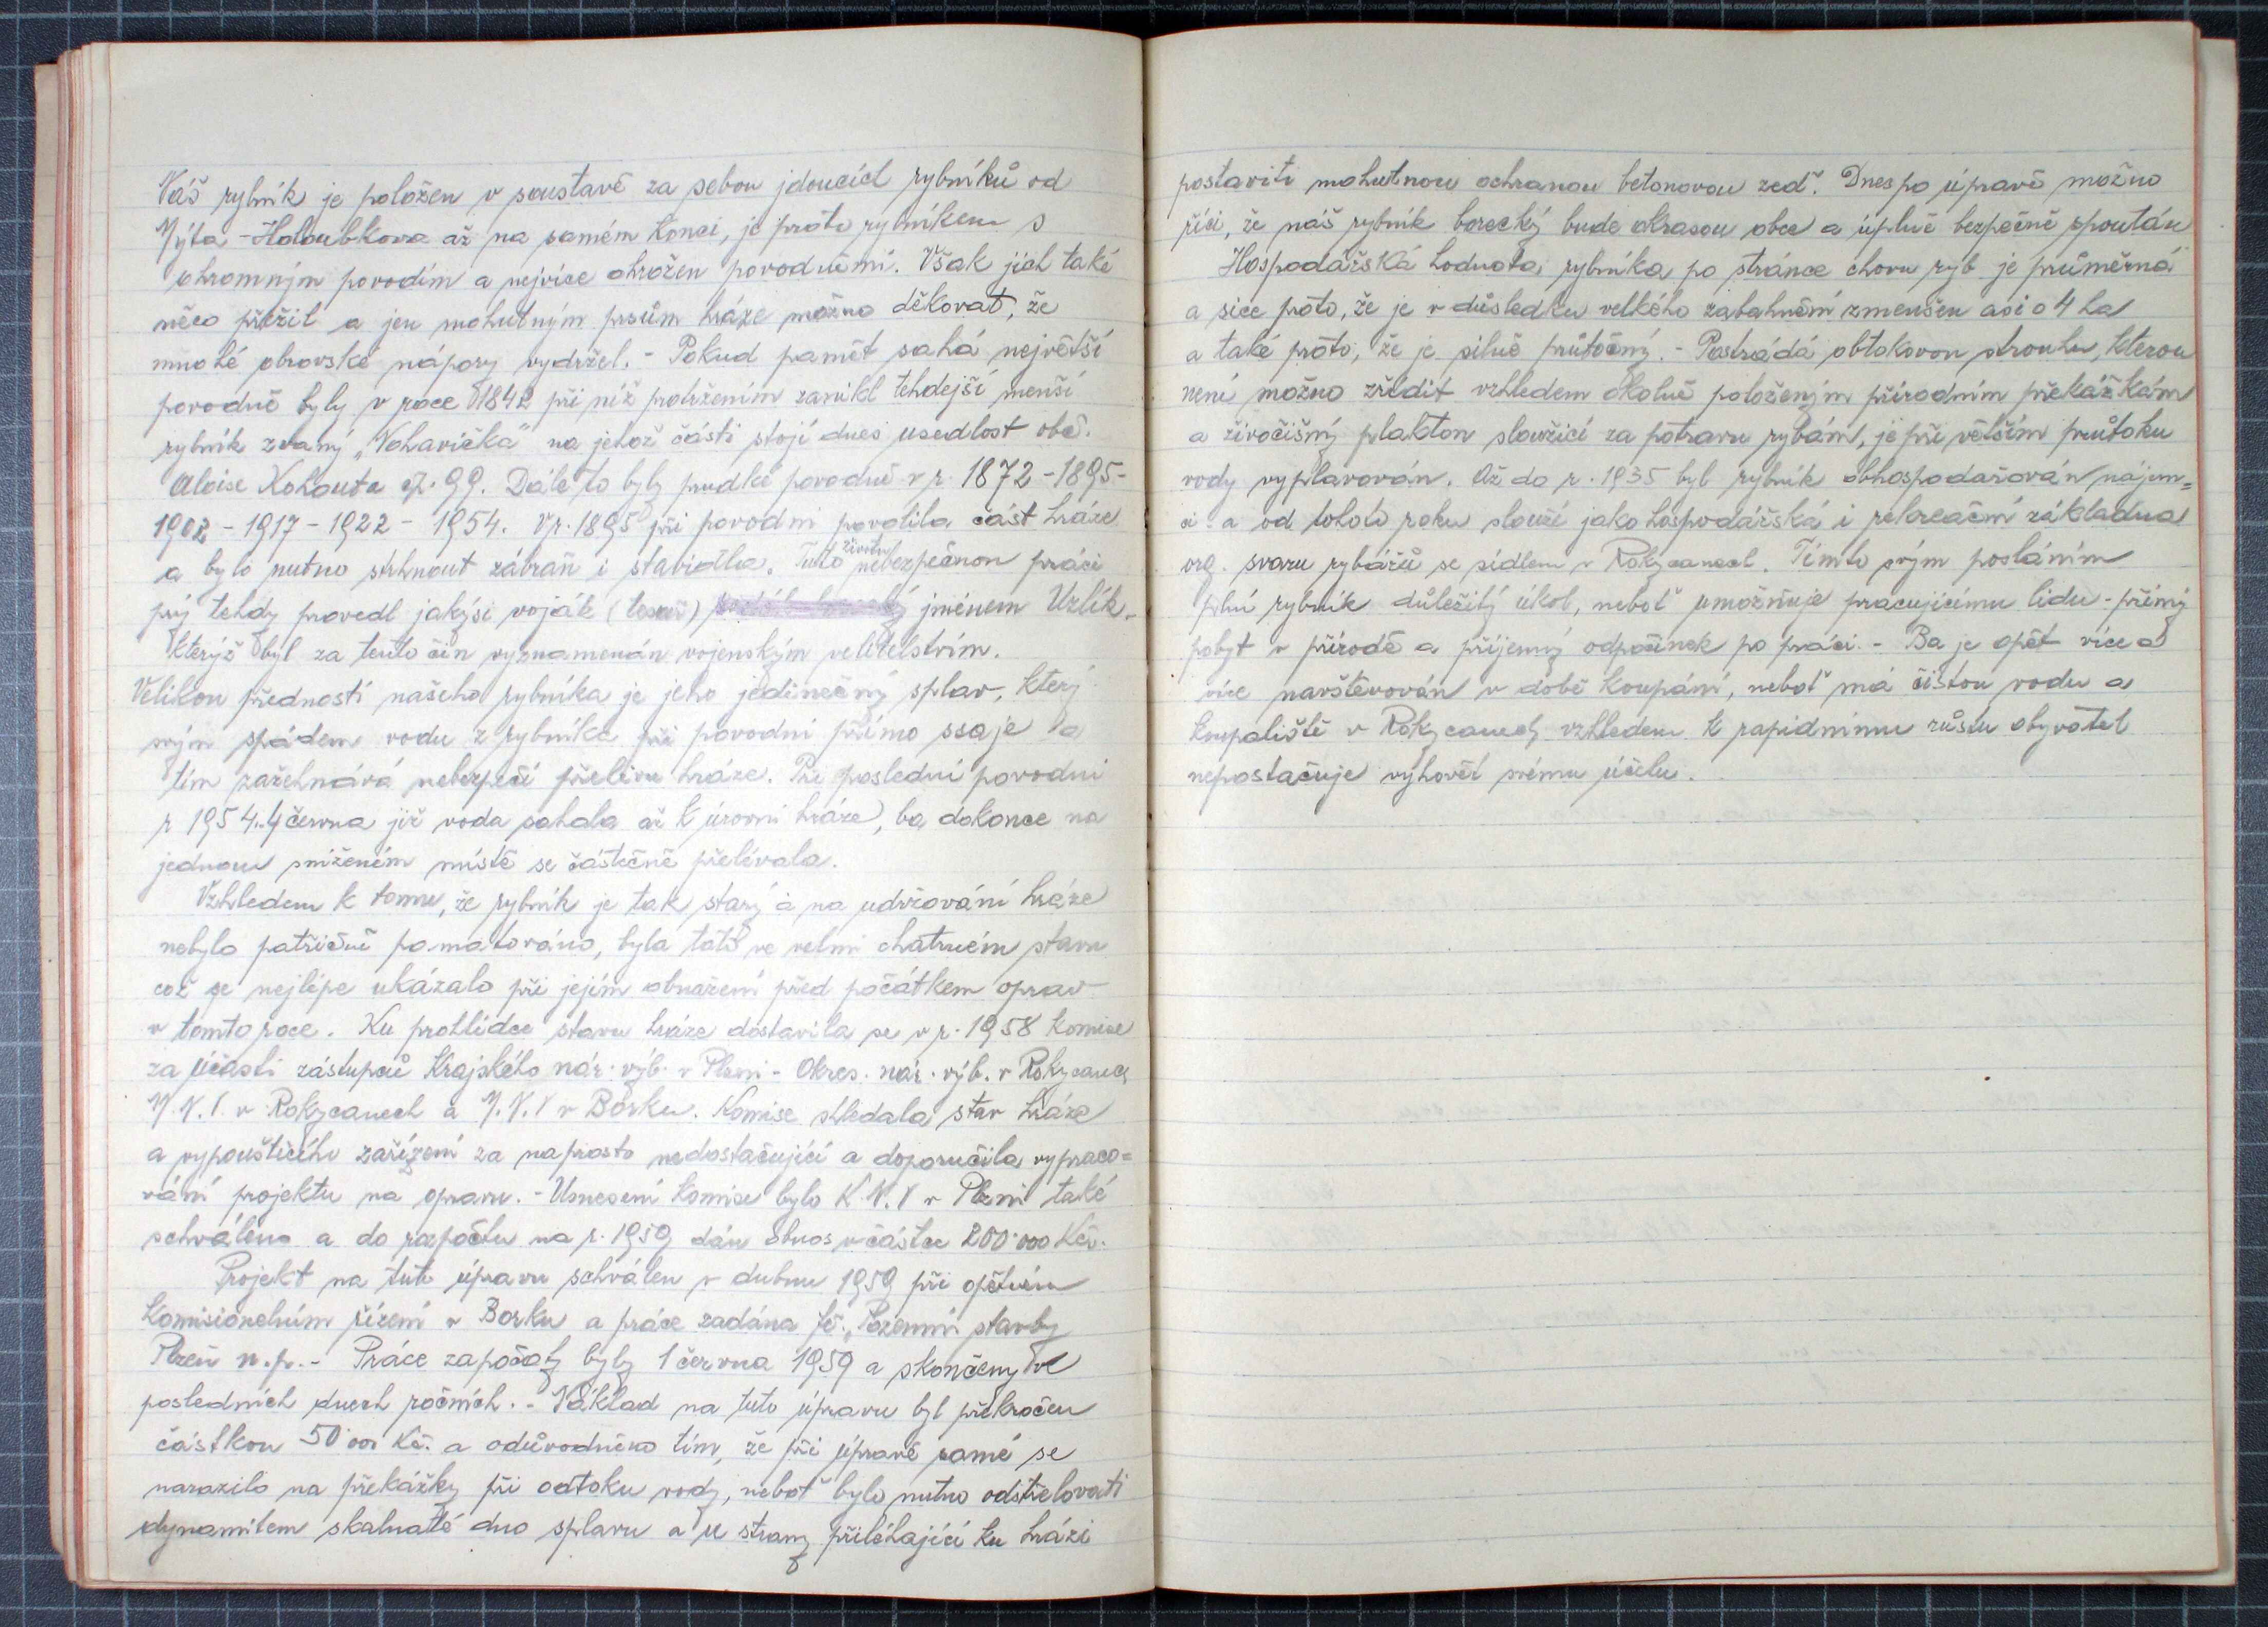 Náš rybník je položen v soustavě za sebou jdoucích rybníků od
Mýta - Holoubkova až na samém konci, je proto rybníkem s
ohromným povodím a nejvíce ohrožen povodněmi. Však jich také
něco přežil a jen mohutným prsům hráze možno děkovat, že
mnohé obrovské nápory vydržel. - Pokud pamět sahá největší
povodně byly v roce 1842 při níž protržením zanikl tehdejší menší
rybník zvaný „Nohavička" na jehož části stojí dnes usedlost obč.
Aloise Kohouta čp. 99. Dále to byly prudké povodně v r. 1872 - 1895 -
1902 - 1917 - 1922 - 1954. V r. 1895 při povodni povolila část hráze
a bylo nutno strhnout zábraň i stavidla. Tuto životu nebezpečnou práci
prý tehdy provedl jakýsi voják (tesař) jménem Uzlík.
kterýž byl za tento čin vyznamenán vojenským velitelstvím.
Velikou předností našeho rybníka je jeho jedinečný splav, který
svým spádem vodu z rybníka při povodni přímo ssaje a
tím zažehnává nebezpečí přelivu hráze. Při poslední povodni
r 1954. 4 června již voda sahala až k úrovni hráze, ba dokonce na
jednom sníženém místě se částečně přelévala.
Vzhledem k tomu, že rybník je tak starý a na udržování hráze
nebylo patřičně pamatováno, byla tato ve velmi chatrném stavu
což se nejlépe ukázalo při jejím obnažení před počátkem oprav
v tomto roce. Ku prohlídce stavu hráze dostavila se v r. 1958 komise
za účasti zástupců Krajského nár. výb. v Plzni - Okres. nár. výb. v Rokycanech
M.N.V. v Rokycanech a M.N.V v Borku. Komise shledala stav hráze
a vypouštěcího zařízení za naprosto nedostačující a doporučila vypraco=
vání projektu na opravu. - Usnesení komise bylo K.N.V v Plzni také
schváleno a do rozpočtu na r. 1959 dán obnos v částce 200.000 Kčs.
Projekt na tuto úpravu schválen v dubnu 1959 při opětném
komisionelním řízení v Borku a práce zadána fě. „Pozemní stavby
Plzeň n.p. - Práce započaty byly 1 června 1959 a skončeny ve
posledních dnech ročních. - Náklad na tuto úpravu byl překročen
částkou 50.000 Kč. a odůvodněno tím, že při úpravě samé se
narazilo na překážky při odtoku vody, neboť bylo nutno odstřelovati
dynamitem skalnaté dno splavu a u strany přiléhající ku hrázi
postaviti mohutnou ochranou betonovou zeď. Dnes po úpravě možno
říci, že náš rybník borecký bude okrasou obce a úplně bezpečně spoután
Hospodářská hodnota rybníka po stránce chovu ryb je průměrná
a sice proto, že je v důsledku velkého zabahnění zmenšen asi o 4 ha
a také proto, že je silně průtočný. - Postrádá obtokovou strouhu, kterou
není možno zřídit vzhledem okolně položeným přírodním překážkám
a živočišný plakton sloužící za potravu rybám, je při větším průtoku
vody vyplavován. Až do r. 1935 byl rybník obhospodařován nájem=
ci a od tohoto roku slouží jako hospodářská i rekreační základna
org. svazu rybářů se sídlem v Rokycanech. Tímto svým posláním
plní rybník důležitý úkol, neboť umožňuje pracujícímu lidu - přímý
pobyt v přírodě a příjemný odpočinek po práci. - Ba je opět více a
více navštěvován v době koupání, neboť má čistou vodu a
koupaliště v Rokycanech vzhledem k rapidnímu růstu obyvatel
nepostačuje vyhovět svému účelu.